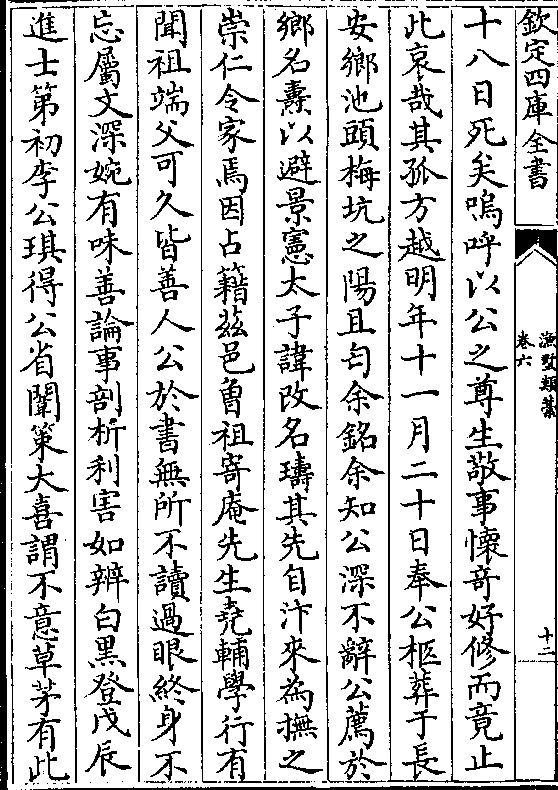 欽定四庫全書
漁墅類藁
卷六
十二
十八日死矣嗚呼以公之尊生敬事懷竒好修而竟止
此哀哉其孤方越明年十一月二十日奉公柩葬于長
安鄉池頭梅坑之陽且匄余銘余知公深不辭公薦於
鄉名燾以避景憲太子諱改名璹其先自汴來為撫之
崇仁令家焉因占籍兹邑曾祖寄庵先生堯輔學行有
聞祖端父可久皆善人公於書無所不讀過眼終身不
忘屬文深婉有味善論事剖析利害如辨白黑登戊辰
進士第初李公琪得公省闈策大喜謂不意草茅有此